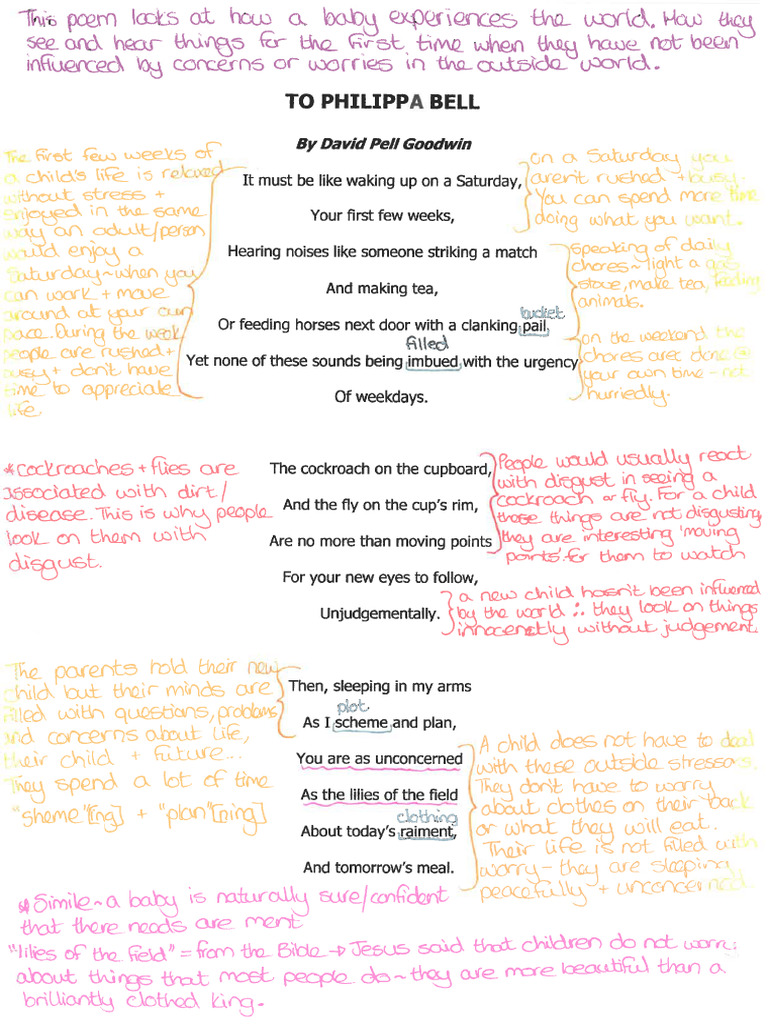 This poem looks at how a baby experiences the world. How they
see and hear things for the first time when they have not been
influenced by concerns or worries in the outside world.
TO PHILIPPA BELL
By David Pell Goodwin
The first few weeks of
a child's life is relaxed
without stress +
enjoyed in the same
way an adult/person
would enjoy a
Saturday~when you
can work + move
around at your own
pace. During the week
people are rushed+
busy + don't have
time to appreciate
life.
It must be like waking up on a Saturday,
Your first few weeks,
Hearing noises like someone striking a match
And making tea,
bucket
Or feeding horses next door with a clanking pail,
filled
Yet none of these sounds being imbued with the urgency
Of weekdays.
on a Saturday you
aren't rushed + busy.
You can spend more time
doing what you want.
speaking of daily
chores~light a gas
stove, make tea, feeding
animals.
on the weekend the
chores are done @
your own time - not
hurriedly.
*cockroaches + flies are
associated with dirt/
disease. This is why people
look on them with
disgust.
The cockroach on the cupboard,
And the fly on the cup's rim,
Are no more than moving points
For your new eyes to follow,
Unjudgementally.
People would usually react
with disgust in seeing a
cockroach or fly. For a child
these things are not disgusting,
they are interesting 'moving
points' for them to watch
a new child hasn't been influenced
by the world ∴ they look on things
innocenetly without judgement.
The parents hold their new
child but their minds are
filled with questions, problems
and concerns about life,
their child + future...
They spend a lot of time
"sheme"[ng] + "plan"[ning]
Then, sleeping in my arms
plot
As I scheme and plan,
You are as unconcerned
As the lilies of the field
clothing
About today's raiment,
And tomorrow's meal.
A child does not have to deal
with these outside stressors.
They don't have to worry
about clothes on their back
or what they will eat.
Their life is not filled with
worry- they are sleeping
peacefully + unconcerned.
* Simile~a baby is naturally sure/confident
that there needs are ment
"lilies of the field" = from the Bible → Jesus said that children do not worry
about things that most people do~they are more beautiful than a
brilliantly clothed king.